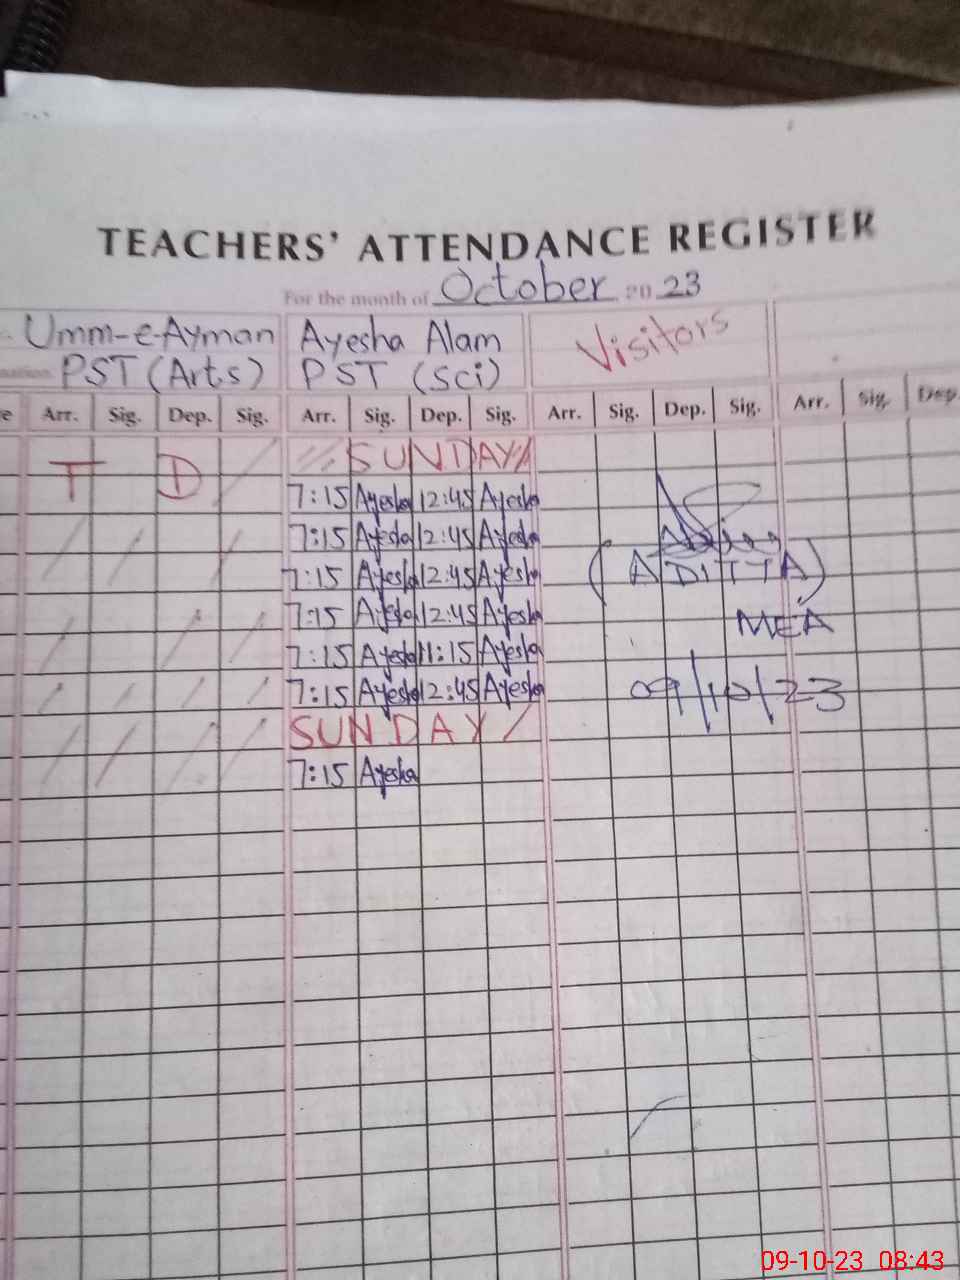 TEACHERS' ATTENDANCE REGISTER
For the month of October 20 23
Umm-e-Ayman Ayesha Alam Visitors
PST (Arts) PST (Sci)
Arr. Sig. Dep. Sig. Arr. Sig. Dep. Sig. Arr. Sig. Dep. Sig. Arr. Sig. Dep.
SUNDAY
T D
7:15 Ayesha 12:45 Ayesha
7:15 Ayesha 12:45 Ayesha
7:15 Ayesha 12:45 Ayesha
(ADITTA)
7:15 Ayesha 12:45 Ayesha
MEA
7:15 Ayesha 11:15 Ayesha
7:15 Ayesha 12:45 Ayesha
09/10/23
SUNDAY
7:15 Ayesha
09-10-23 08:43